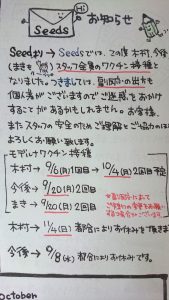 Hi
Seeds
お知らせ
Seedsより→Seedsでは、この度 木村、今後
(まきを スタッフ全員のワクチン接種と
なりました。つきましては、副反応の出方も
個人差がございますのでご迷惑をおかけ
することが あるかもしれません。お客様、
またスタッフの安全のためご理解とご協力のほど
よろしくお願い致します。
モデルナワクチン接種
木村→9/6(月)1回目→10/4(月)2回目予定
今後→9/20(月)2回目
まき→9/20(月)2回目
木村→11/4(日) 都合によりお休みを頂きます
今後→9/8(水)都合によりお休みです。
October